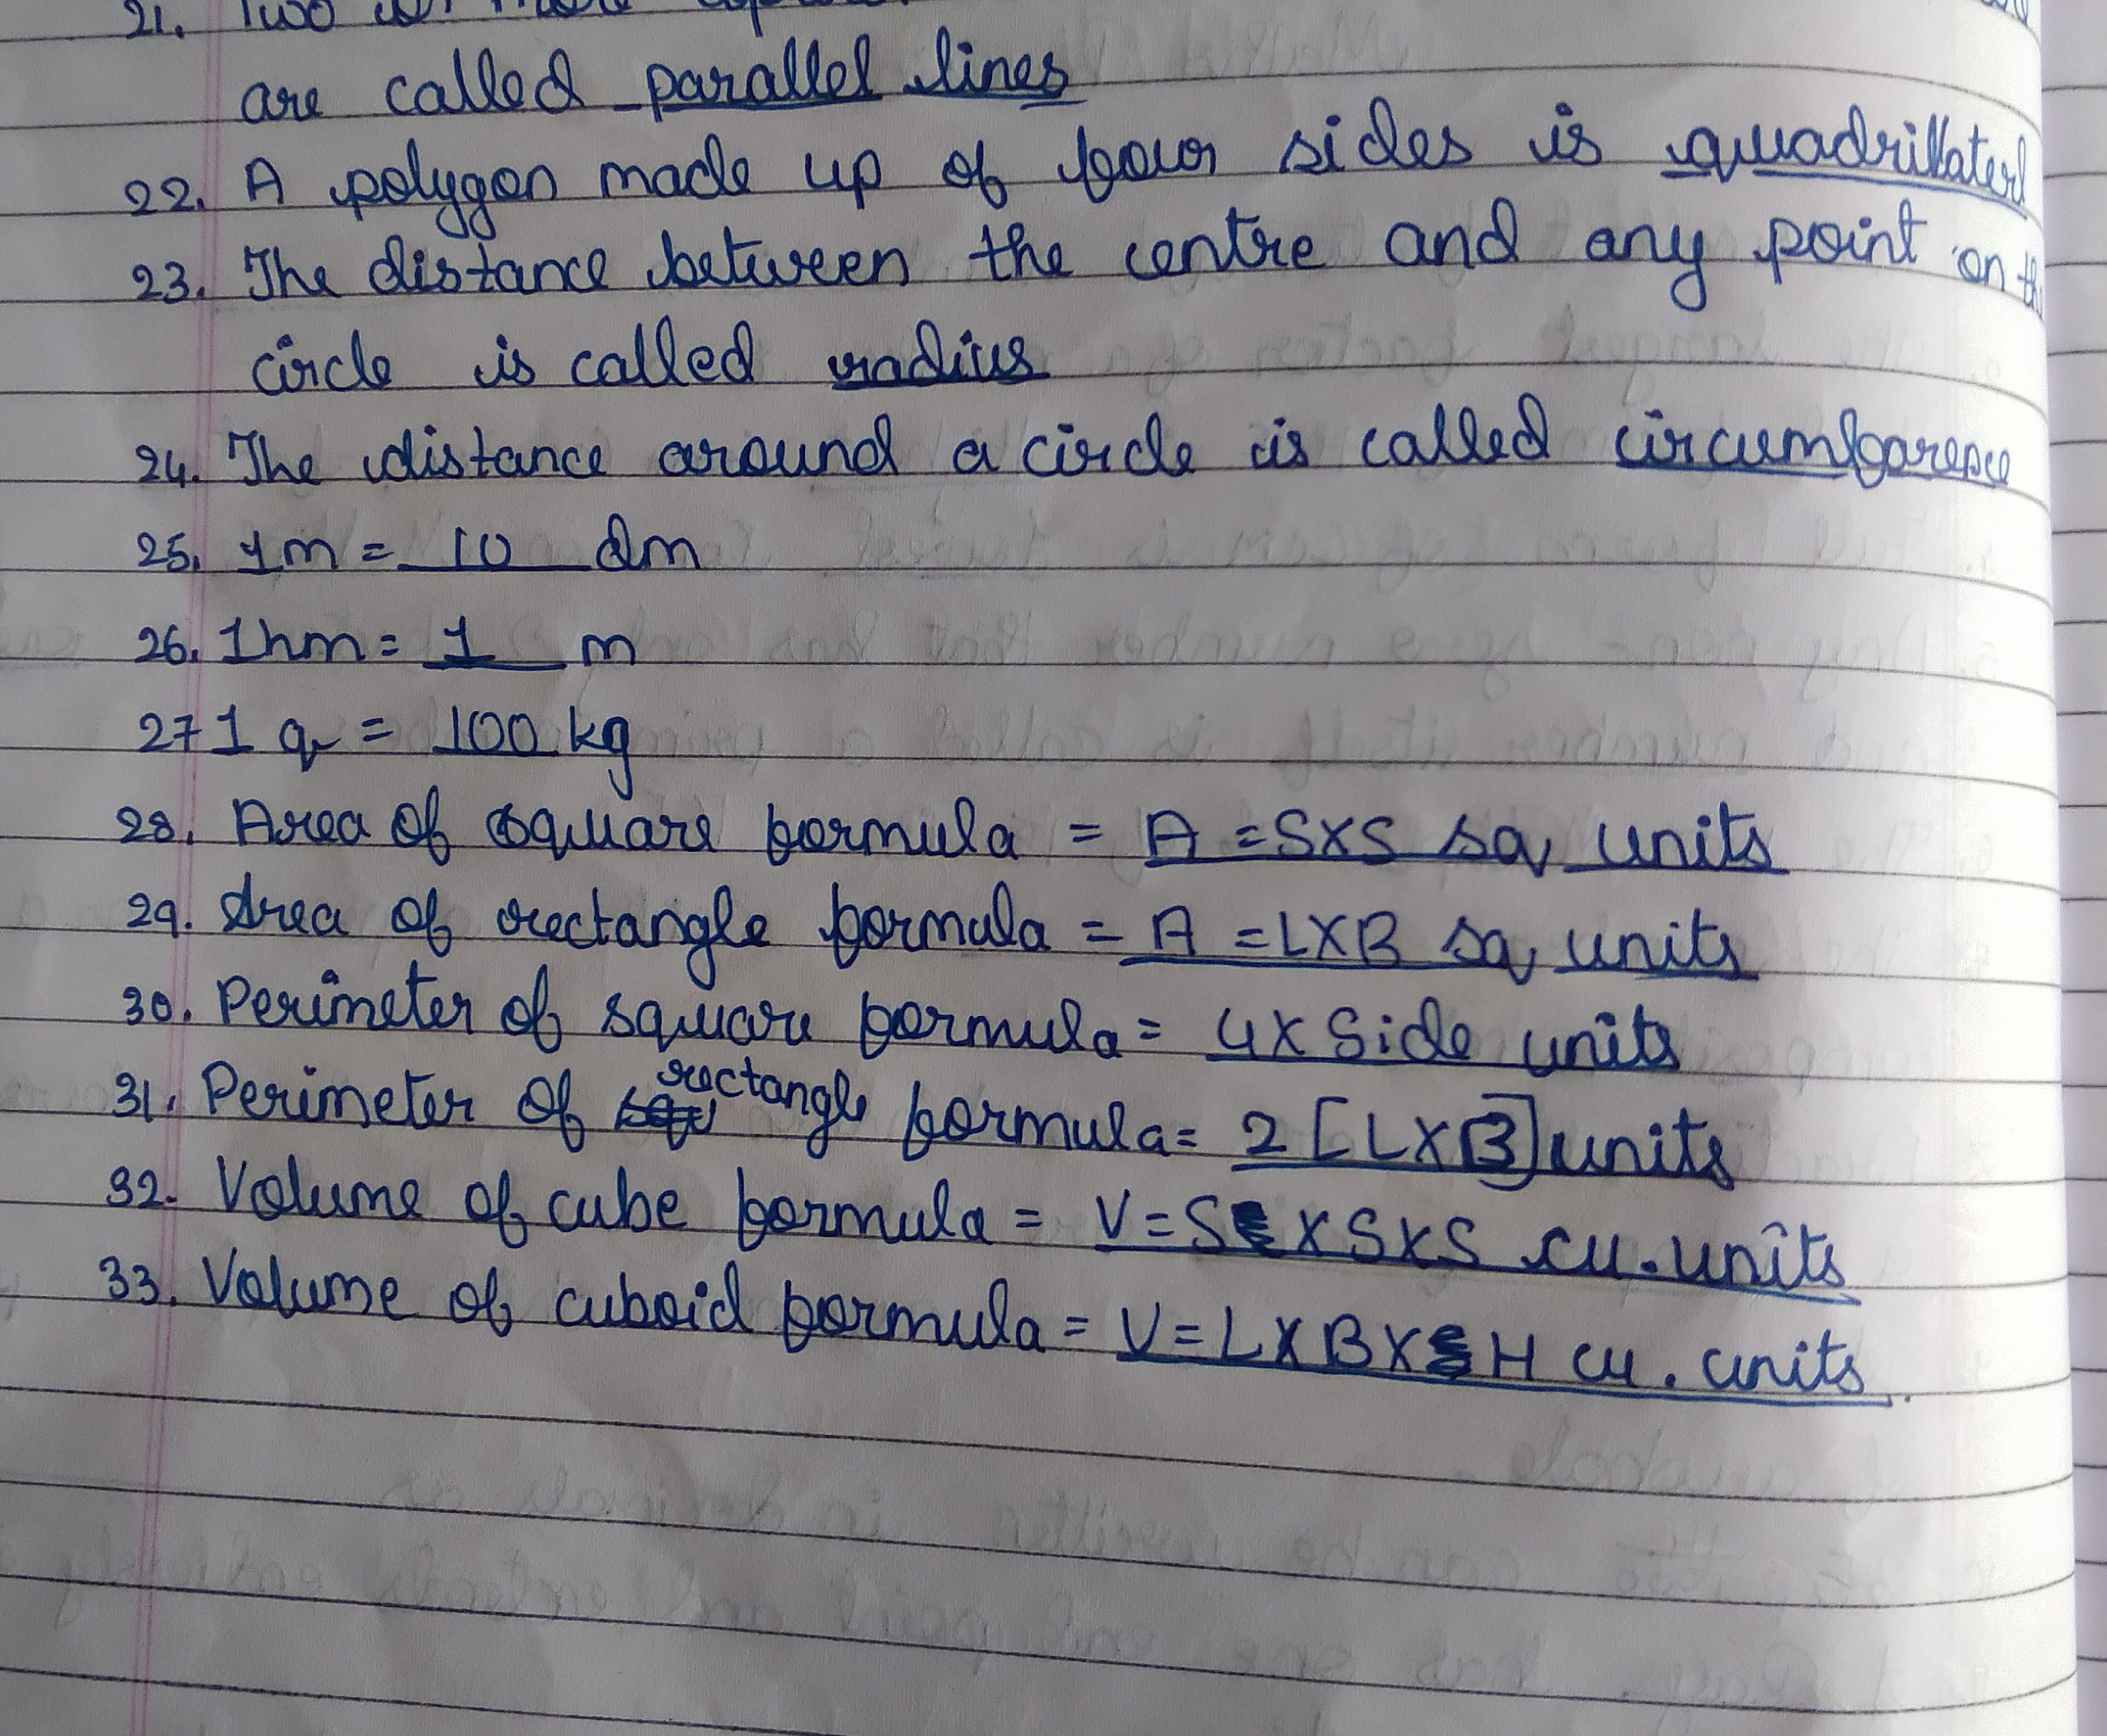 21. Two or more
are called parallel lines
22. A polygon made up of four sides is quadrillaterl
23. The distance between the centre and any point on the
circle is called radius
24. The distance around a circle is called circumfarence
25. 1m = 10 dm
26. 1hm = 1 m
27 1 q = 100 kg
28. Area of square formula = A = S×S sq units
29. Area of rectangle formula = A = L×B sq units
30. Perimeter of square formula = 4× Side units
31. Perimeter of rectangle formula = 2 [L×B] units
32. Volume of cube formula = V = S×S×S cu. units
33. Volume of cuboid formula = V = L×B×H cu. units.